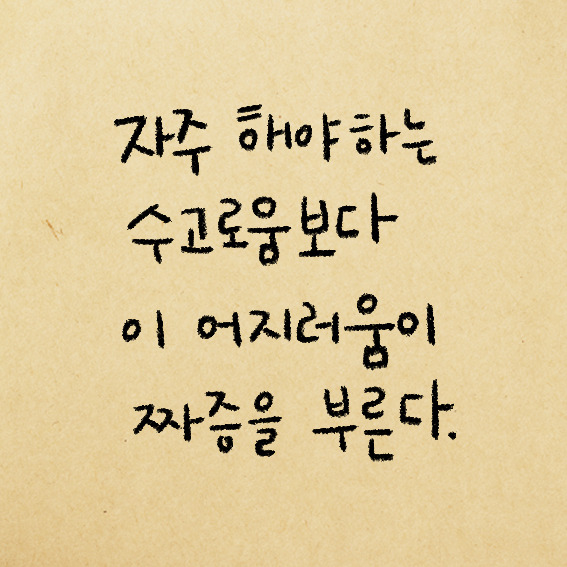 자주 해야하는
수고로움보다
이 어지러움이
짜증을 부른다.